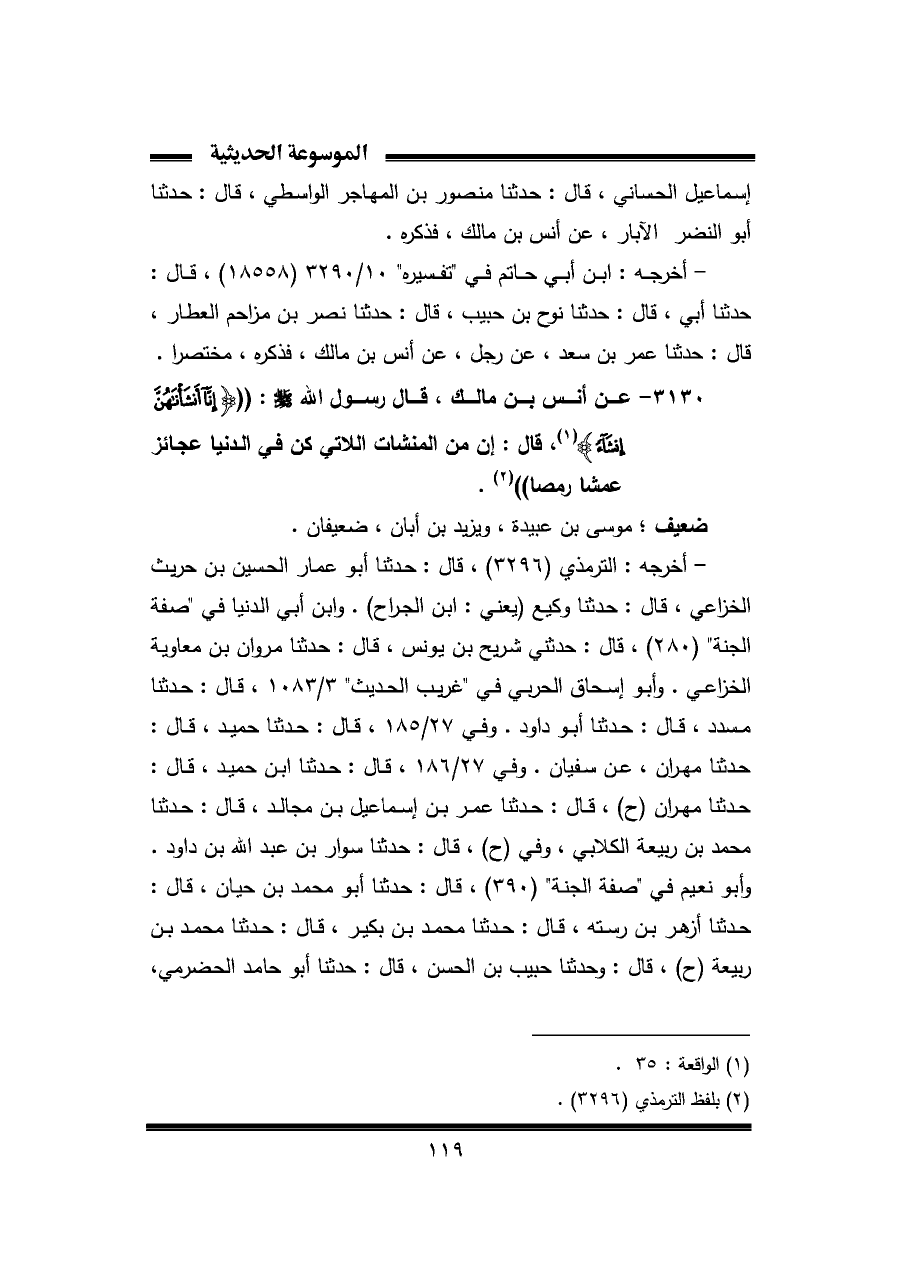 الموسوعة الحديثية
إسماعيل الحساني ، قال : حدثنا منصور بن المهاجر الواسطي ، قال : حدثنا
أبو النضر الآبار ، عن أنس بن مالك ، فذكره .
- أخرجه : ابن أبي حاتم في "تفسيره" ٣٢٩٠/١٠ (١٨٥٥٨) ، قال :
حدثنا أبي ، قال : حدثنا نوح بن حبيب ، قال : حدثنا نصر بن مزاحم العطار ،
قال : حدثنا عمر بن سعد ، عن رجل ، عن أنس بن مالك ، فذكره ، مختصرا .
٣١٣٠- عن أنس بن مالك ، قال رسول الله ﷺ : ((﴿إِنَّآ أَنشَأْنَٰهُنَّ
إِنشَآءً﴾(١)، قال : إن من المنشات اللاتي كن في الدنيا عجائز
عمشا رمصا))(٢) .
ضعيف ؛ موسى بن عبيدة ، ويزيد بن أبان ، ضعيفان .
- أخرجه : الترمذي (٣٢٩٦) ، قال : حدثنا أبو عمار الحسين بن حريث
الخزاعي ، قال : حدثنا وكيع (يعني : ابن الجراح) . وابن أبي الدنيا في "صفة
الجنة" (٢٨٠) ، قال : حدثني شريح بن يونس ، قال : حدثنا مروان بن معاوية
الخزاعي . وأبو إسحاق الحربي في "غريب الحديث" ١٠٨٣/٣ ، قال : حدثنا
مسدد ، قال : حدثنا أبو داود . وفي ١٨٥/٢٧ ، قال : حدثنا حميد ، قال :
حدثنا مهران ، عن سفيان . وفي ١٨٦/٢٧ ، قال : حدثنا ابن حميد ، قال :
حدثنا مهران (ح) ، قال : حدثنا عمر بن إسماعيل بن مجالد ، قال : حدثنا
محمد بن ربيعة الكلابي ، وفي (ح) ، قال : حدثنا سوار بن عبد الله بن داود .
وأبو نعيم في "صفة الجنة" (٣٩٠) ، قال : حدثنا أبو محمد بن حيان ، قال :
حدثنا أزهر بن رسته ، قال : حدثنا محمد بن بكير ، قال : حدثنا محمد بن
ربيعة (ح) ، قال : وحدثنا حبيب بن الحسن ، قال : حدثنا أبو حامد الحضرمي،
(١) الواقعة : ٣٥ .
(٢) بلفظ الترمذي (٣٢٩٦) .
١١٩